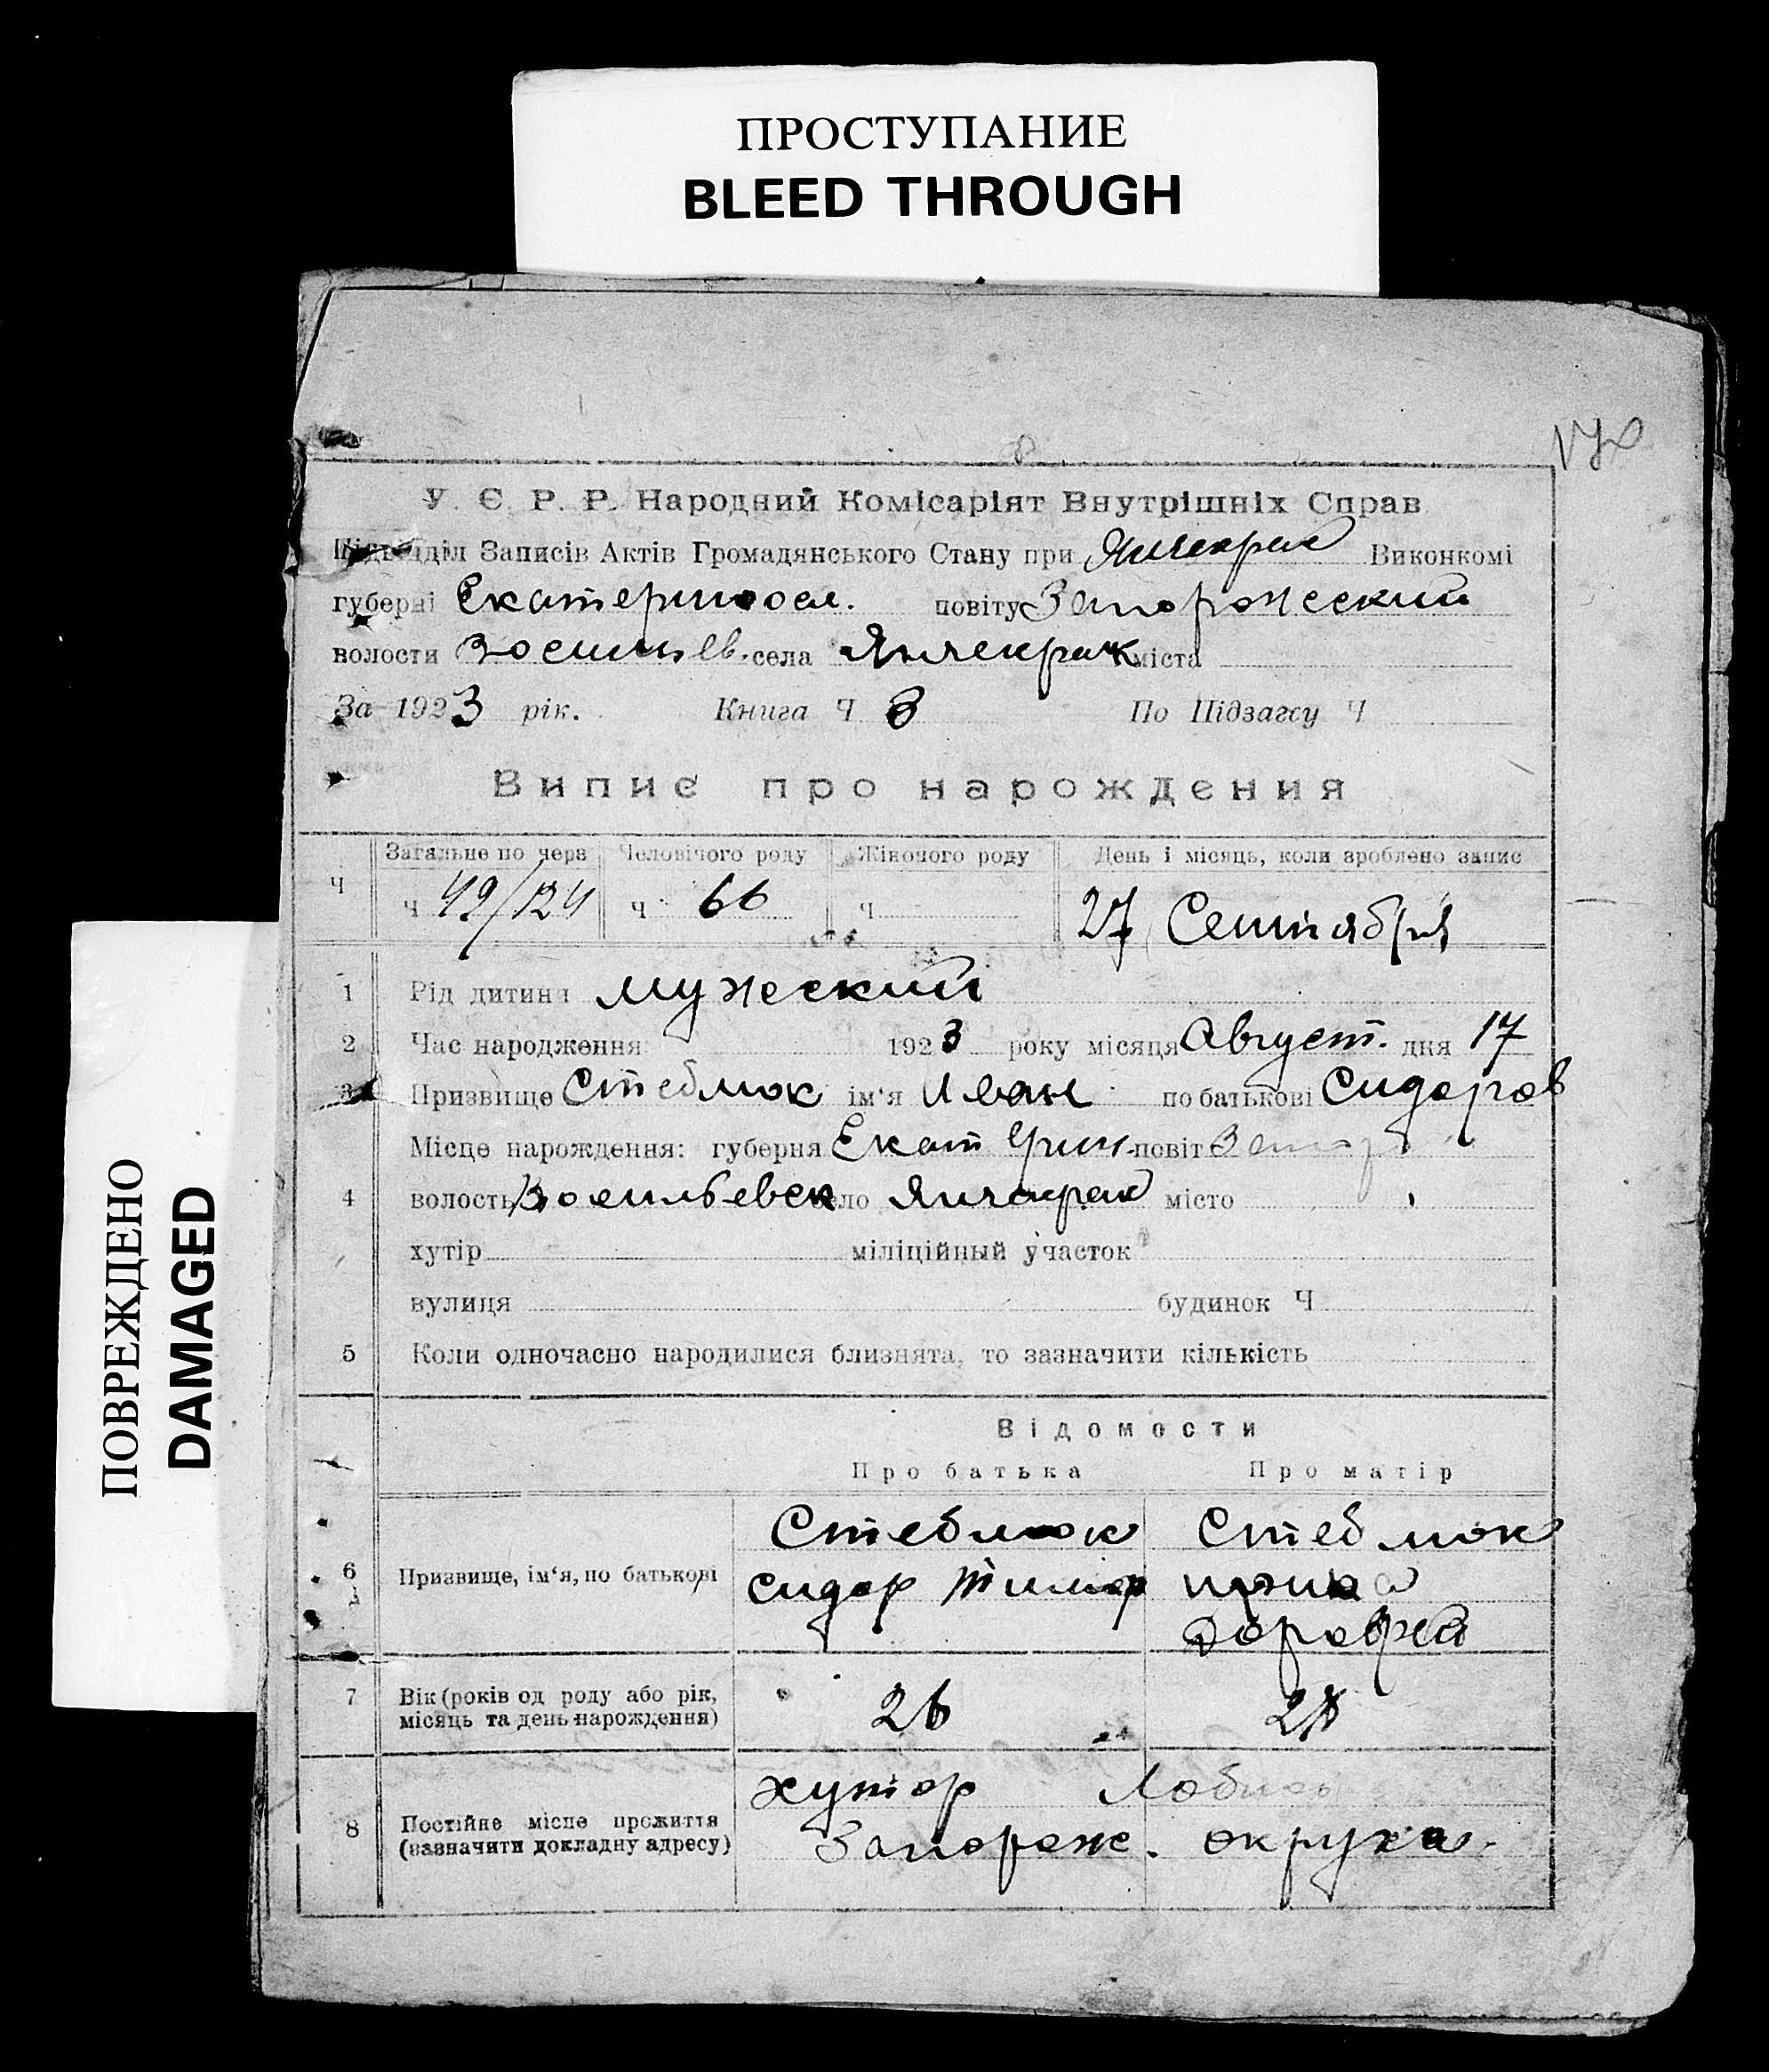 ПРОСТУПАНИЕ
BLEED THROUGH
ПОВРЕЖДЕНО
DAMAGED
У. Є. Р. Р. Народний Комісаріят Внутрішніх Справ
Підвідділ Записів Актів Громадянського Стану при Янчекрак Виконкомі
губерні Екатериносл. повіту Запорожский
волости села Янчекрак міста
За 1923 рік. Книга Ч 3 По Підзагсу Ч
Випис про нарождения
Ч Загальне по черз Человічого роду Жіночого роду День і місяць, коли зроблено запис
ч 49/124 ч 66 ч 27 Сентября
1 Рід дитини мужеский
2 Час народження 1923 року місяця Август. дня 17
3 Призвище Стеблюк ім'я Иван по батькові Сидоров
Місце нарождення: губерня Екатерин. повіт Запор
4 волость Васильевск село Янчекрак місто
хутір міліційный участок
вулиця будинок Ч
5 Коли одночасно народилися близнята, то зазначити кількість
Відомости
Про батька Про матір
Стеблюк Стеблюк
6 Призвище, ім'я, по батькові Сидор Тимоф
Дорофеев
7 Вік (років од роду або рік, місяць та день нарождення) 26
хутор
8 Постійне місце прожиття (зазначити докладну адресу) Запорож. округа.